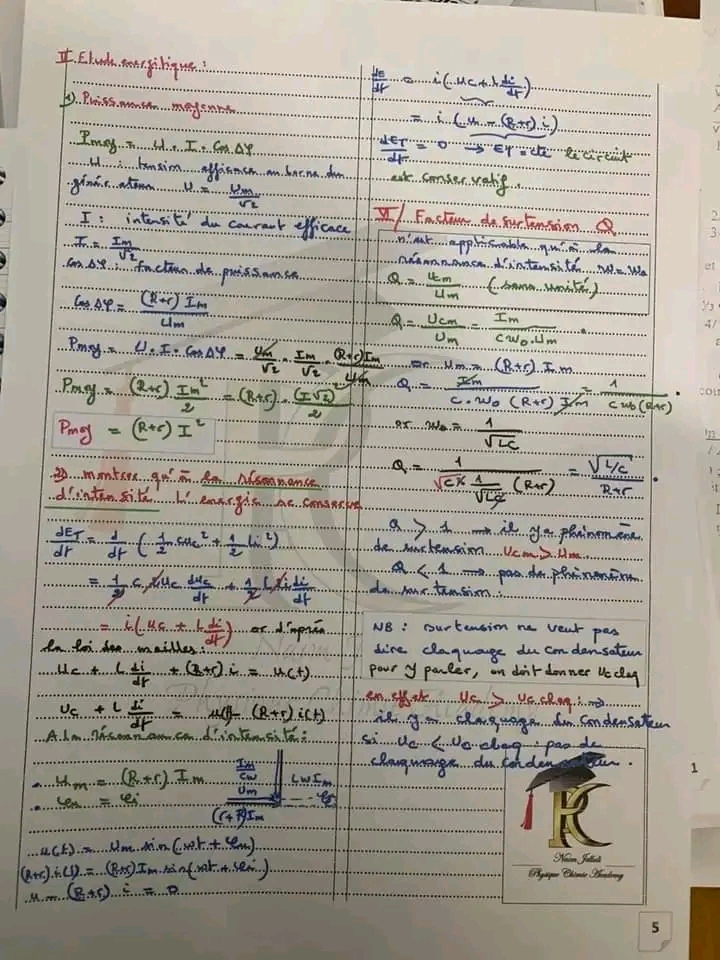 II Etude energitique :
1) Puissance moyenne
Pmoy = U . I . cos Δφ
U : tension efficace au borne du
générateur U = Um/√2
I : intensité du courant efficace
I = Im/√2
cos Δφ : facteur de puissance
cos Δφ = (R+r) Im / Um
Pmoy = U . I . cos Δφ = Um/√2 . Im/√2 . (R+r) Im / Um
Pmoy = (R+r) Im²/2 = (R+r) . (I√2)²/2
Pmoy = (R+r) I²
2) montrer qu'à la résonnance
d'intensité l'energie se conserve
dET/dt = d/dt ( 1/2 c uc² + 1/2 L i² )
= 1/2 c 2 uc duc/dt + 1/2 L 2 i di/dt
= i ( uc + L di/dt ) or d'après
la loi des mailles :
uc + L di/dt + (R+r) i = u(t)
uc + L di/dt = u(t) - (R+r) i(t)
A la résonnance d'intensité :
. Um = (R+r) Im
. φu = φi
Im/cw
Um
LwIm
(r+R)Im
u(t) = Um sin (wt + φu)
(R+r) i(t) = (R+r) Im sin (wt + φi)
u - (R+r) i = 0
dE/dt = i ( uc + L di/dt )
= i ( u - (R+r) i )
dET/dt = 0 → ET = cte le circuit
est conservatif.
VI/ Facteur de surtension Q
n'est applicable qu'à la
résonnance d'intensité w = w₀
Q = Ucm/Um (sans unité)
Q = Ucm/Um = Im / c w₀ . Um
or Um = (R+r) Im
Q = Im / c . w₀ (R+r) Im = 1 / c w₀ (R+r)
or w₀ = 1/√LC
Q = 1 / √c² 1/√Lc (R+r) = √L/c / R+r
Q > 1 → il y a phénomène
de surtension Ucm > Um
Q < 1 → pas de phénomène
de surtension.
NB : surtension ne veut pas
dire claquage du condensateur
pour y parler, on doit donner Uc claq
en effet Uc > Uc claq : →
il y a claquage du condensateur
si Uc < Uc claq : pas de
claquage du condensateur.
Naim Jelleli
Physique Chimie Academy
5
1